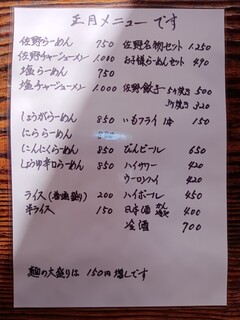 正月メニューです
佐野らーめん 750
佐野チャーシューメン 1.000
塩らーめん 750
塩チャーシューメン 1.000
しょうがらーめん 850
にららーめん
にんにくらーめん 850
しょうゆ辛口らーめん 850
ライス(普通盛り) 200
半ライス 150
佐野名物セット 1.250
お子様らーめんセット 490
佐野餃子 5ヶ焼き 500
3ヶ焼き 320
いもフライ 1本 150
びんビール 650
ハイサワー 420
ウーロンハイ 420
ハイボール 450
日本酒 400
冷酒 700
麺の大盛りは 150円増しです